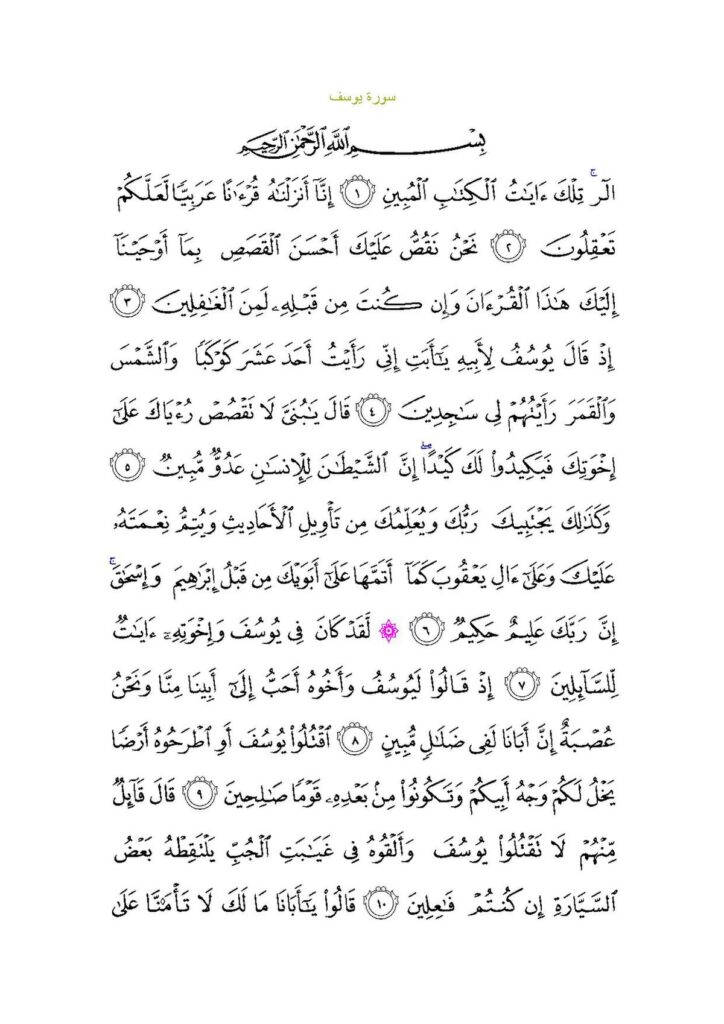 سورة يوسف
بِسْمِ اللَّهِ الرَّحْمَٰنِ الرَّحِيمِ
الٓرۚ تِلْكَ ءَايَٰتُ الْكِتَٰبِ الْمُبِينِ ١ إِنَّآ أَنزَلْنَٰهُ قُرْءَٰنًا عَرَبِيًّا لَّعَلَّكُمْ
تَعْقِلُونَ ٢ نَحْنُ نَقُصُّ عَلَيْكَ أَحْسَنَ الْقَصَصِ بِمَآ أَوْحَيْنَآ
إِلَيْكَ هَٰذَا الْقُرْءَانَ وَإِن كُنتَ مِن قَبْلِهِۦ لَمِنَ الْغَٰفِلِينَ ٣
إِذْ قَالَ يُوسُفُ لِأَبِيهِ يَٰٓأَبَتِ إِنِّى رَأَيْتُ أَحَدَ عَشَرَ كَوْكَبًا وَالشَّمْسَ
وَالْقَمَرَ رَأَيْتُهُمْ لِى سَٰجِدِينَ ٤ قَالَ يَٰبُنَىَّ لَا تَقْصُصْ رُءْيَاكَ عَلَىٰٓ
إِخْوَتِكَ فَيَكِيدُوا۟ لَكَ كَيْدًاۖ إِنَّ الشَّيْطَٰنَ لِلْإِنسَٰنِ عَدُوٌّ مُّبِينٌ ٥
وَكَذَٰلِكَ يَجْتَبِيكَ رَبُّكَ وَيُعَلِّمُكَ مِن تَأْوِيلِ الْأَحَادِيثِ وَيُتِمُّ نِعْمَتَهُۥ
عَلَيْكَ وَعَلَىٰٓ ءَالِ يَعْقُوبَ كَمَآ أَتَمَّهَا عَلَىٰٓ أَبَوَيْكَ مِن قَبْلُ إِبْرَٰهِيمَ وَإِسْحَٰقَۚ
إِنَّ رَبَّكَ عَلِيمٌ حَكِيمٌ ٦ ۞ لَّقَدْ كَانَ فِى يُوسُفَ وَإِخْوَتِهِۦٓ ءَايَٰتٌ
لِّلسَّآئِلِينَ ٧ إِذْ قَالُوا۟ لَيُوسُفُ وَأَخُوهُ أَحَبُّ إِلَىٰٓ أَبِينَا مِنَّا وَنَحْنُ
عُصْبَةٌ إِنَّ أَبَانَا لَفِى ضَلَٰلٍ مُّبِينٍ ٨ اقْتُلُوا۟ يُوسُفَ أَوِ اطْرَحُوهُ أَرْضًا
يَخْلُ لَكُمْ وَجْهُ أَبِيكُمْ وَتَكُونُوا۟ مِنۢ بَعْدِهِۦ قَوْمًا صَٰلِحِينَ ٩ قَالَ قَآئِلٌ
مِّنْهُمْ لَا تَقْتُلُوا۟ يُوسُفَ وَأَلْقُوهُ فِى غَيَٰبَتِ الْجُبِّ يَلْتَقِطْهُ بَعْضُ
السَّيَّارَةِ إِن كُنتُمْ فَٰعِلِينَ ١٠ قَالُوا۟ يَٰٓأَبَانَا مَا لَكَ لَا تَأْمَ۫نَّا عَلَىٰ